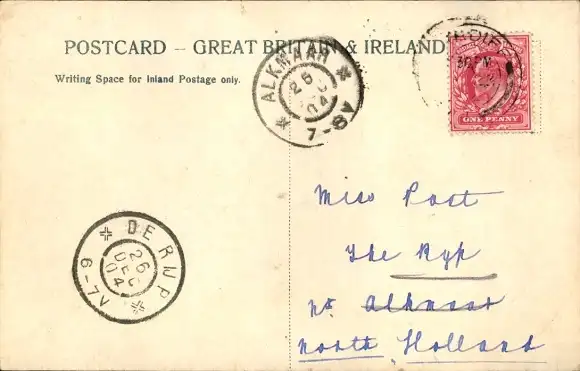 POSTCARD – GREAT BRITAIN & IRELAND
Writing Space for Inland Postage only.
ALKMAAR
26
DEC
04
7-8V
ONE PENNY
Miss Post
The Ryp
Nr Alkmaar
North Holland
DE RYP
26
DEC
04
6-7V